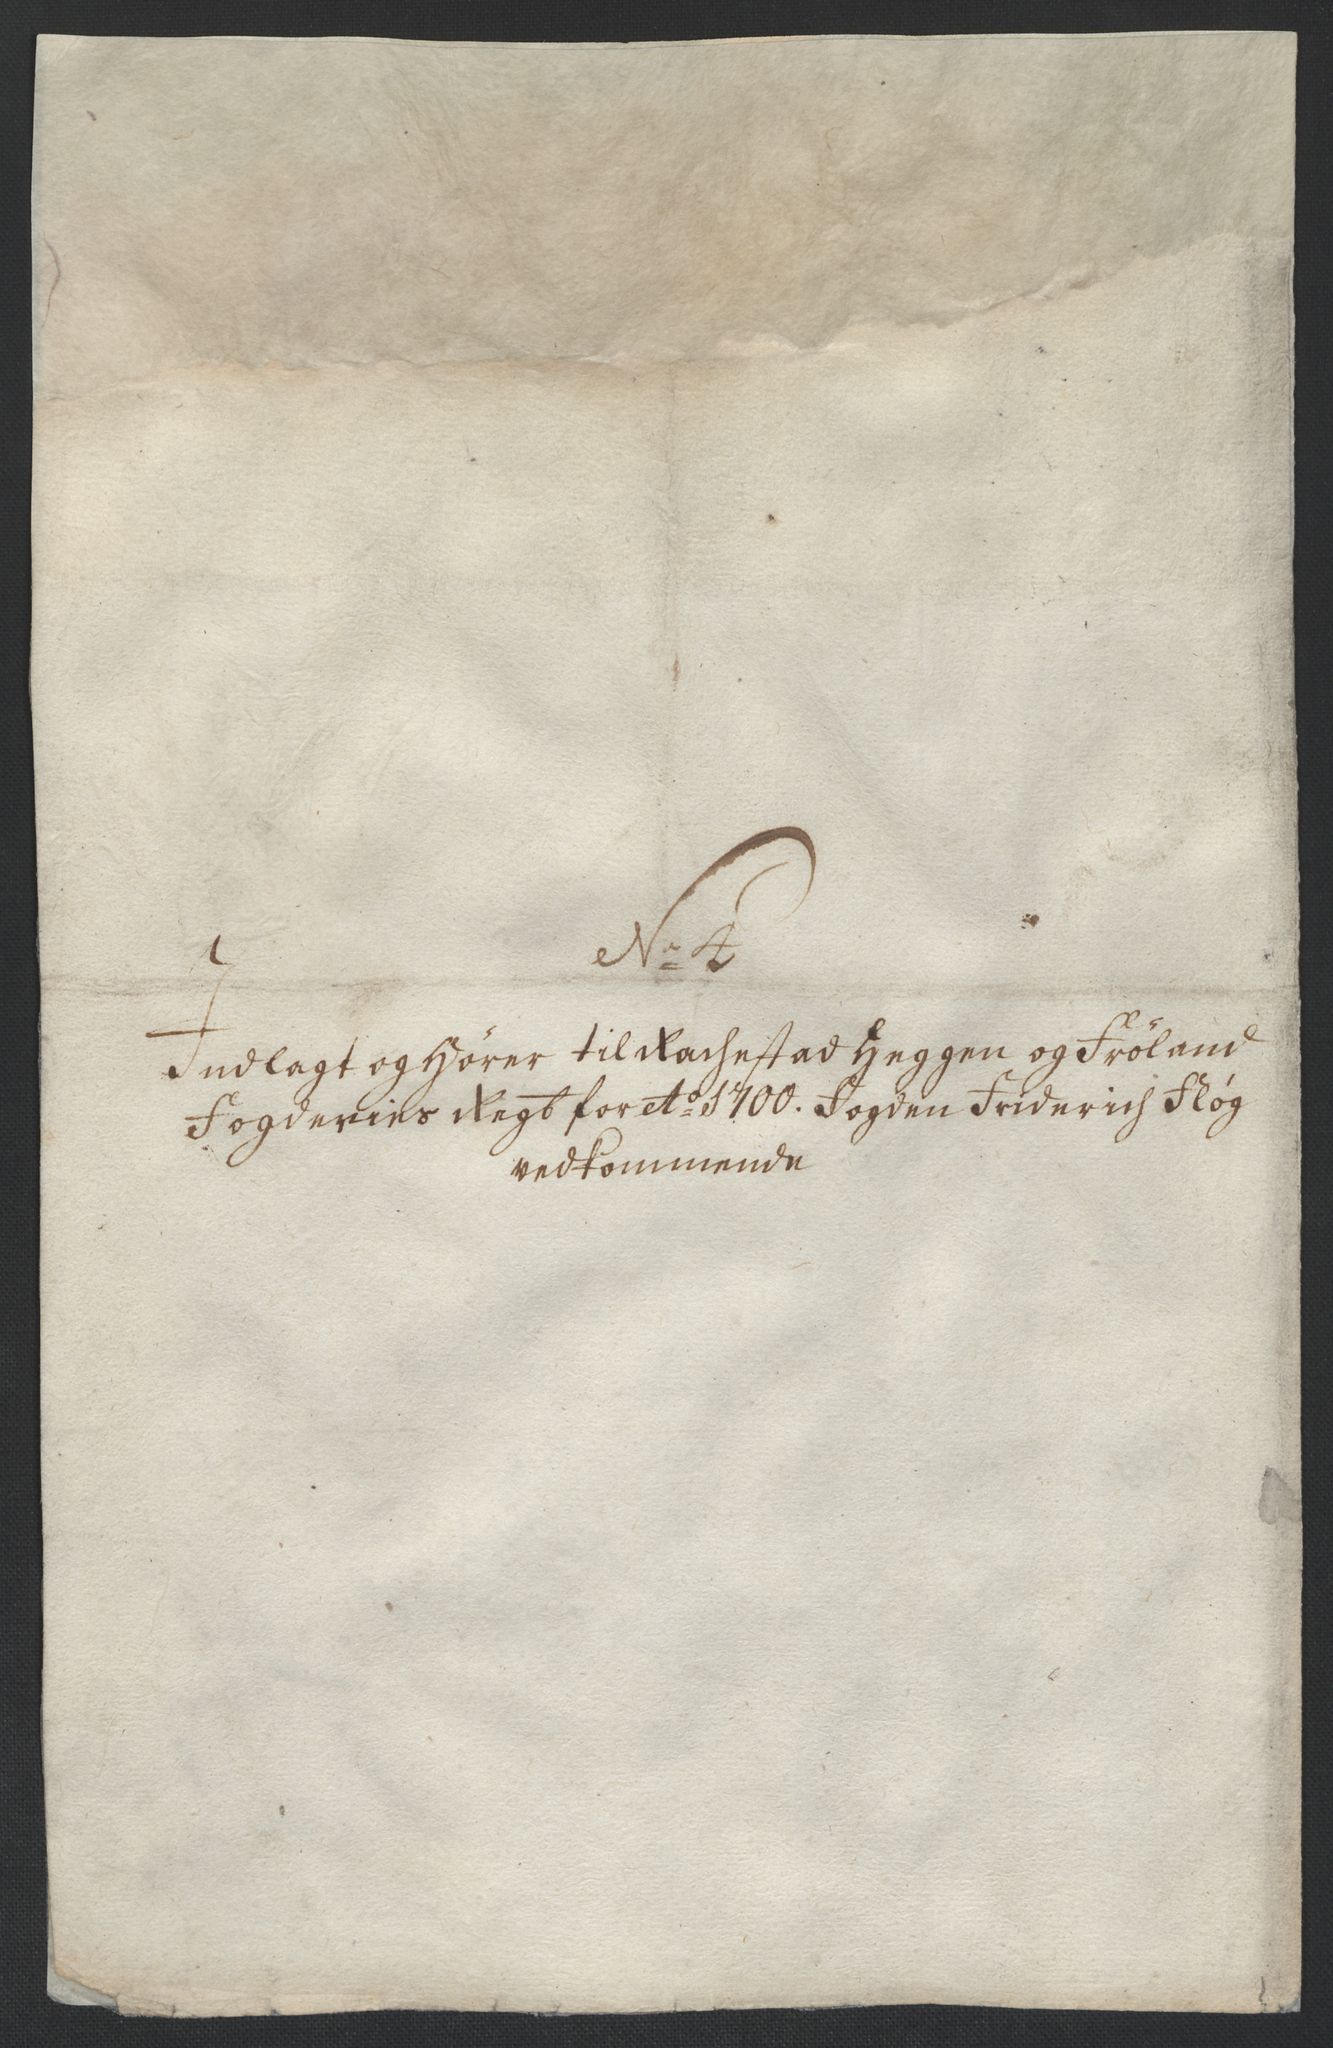 No 4
Indlagt og Hörer til Rachestad Heggen og Fröland
Fogderies Regb for Ao 1700. Fogden Friderich Fløg
vedkommende